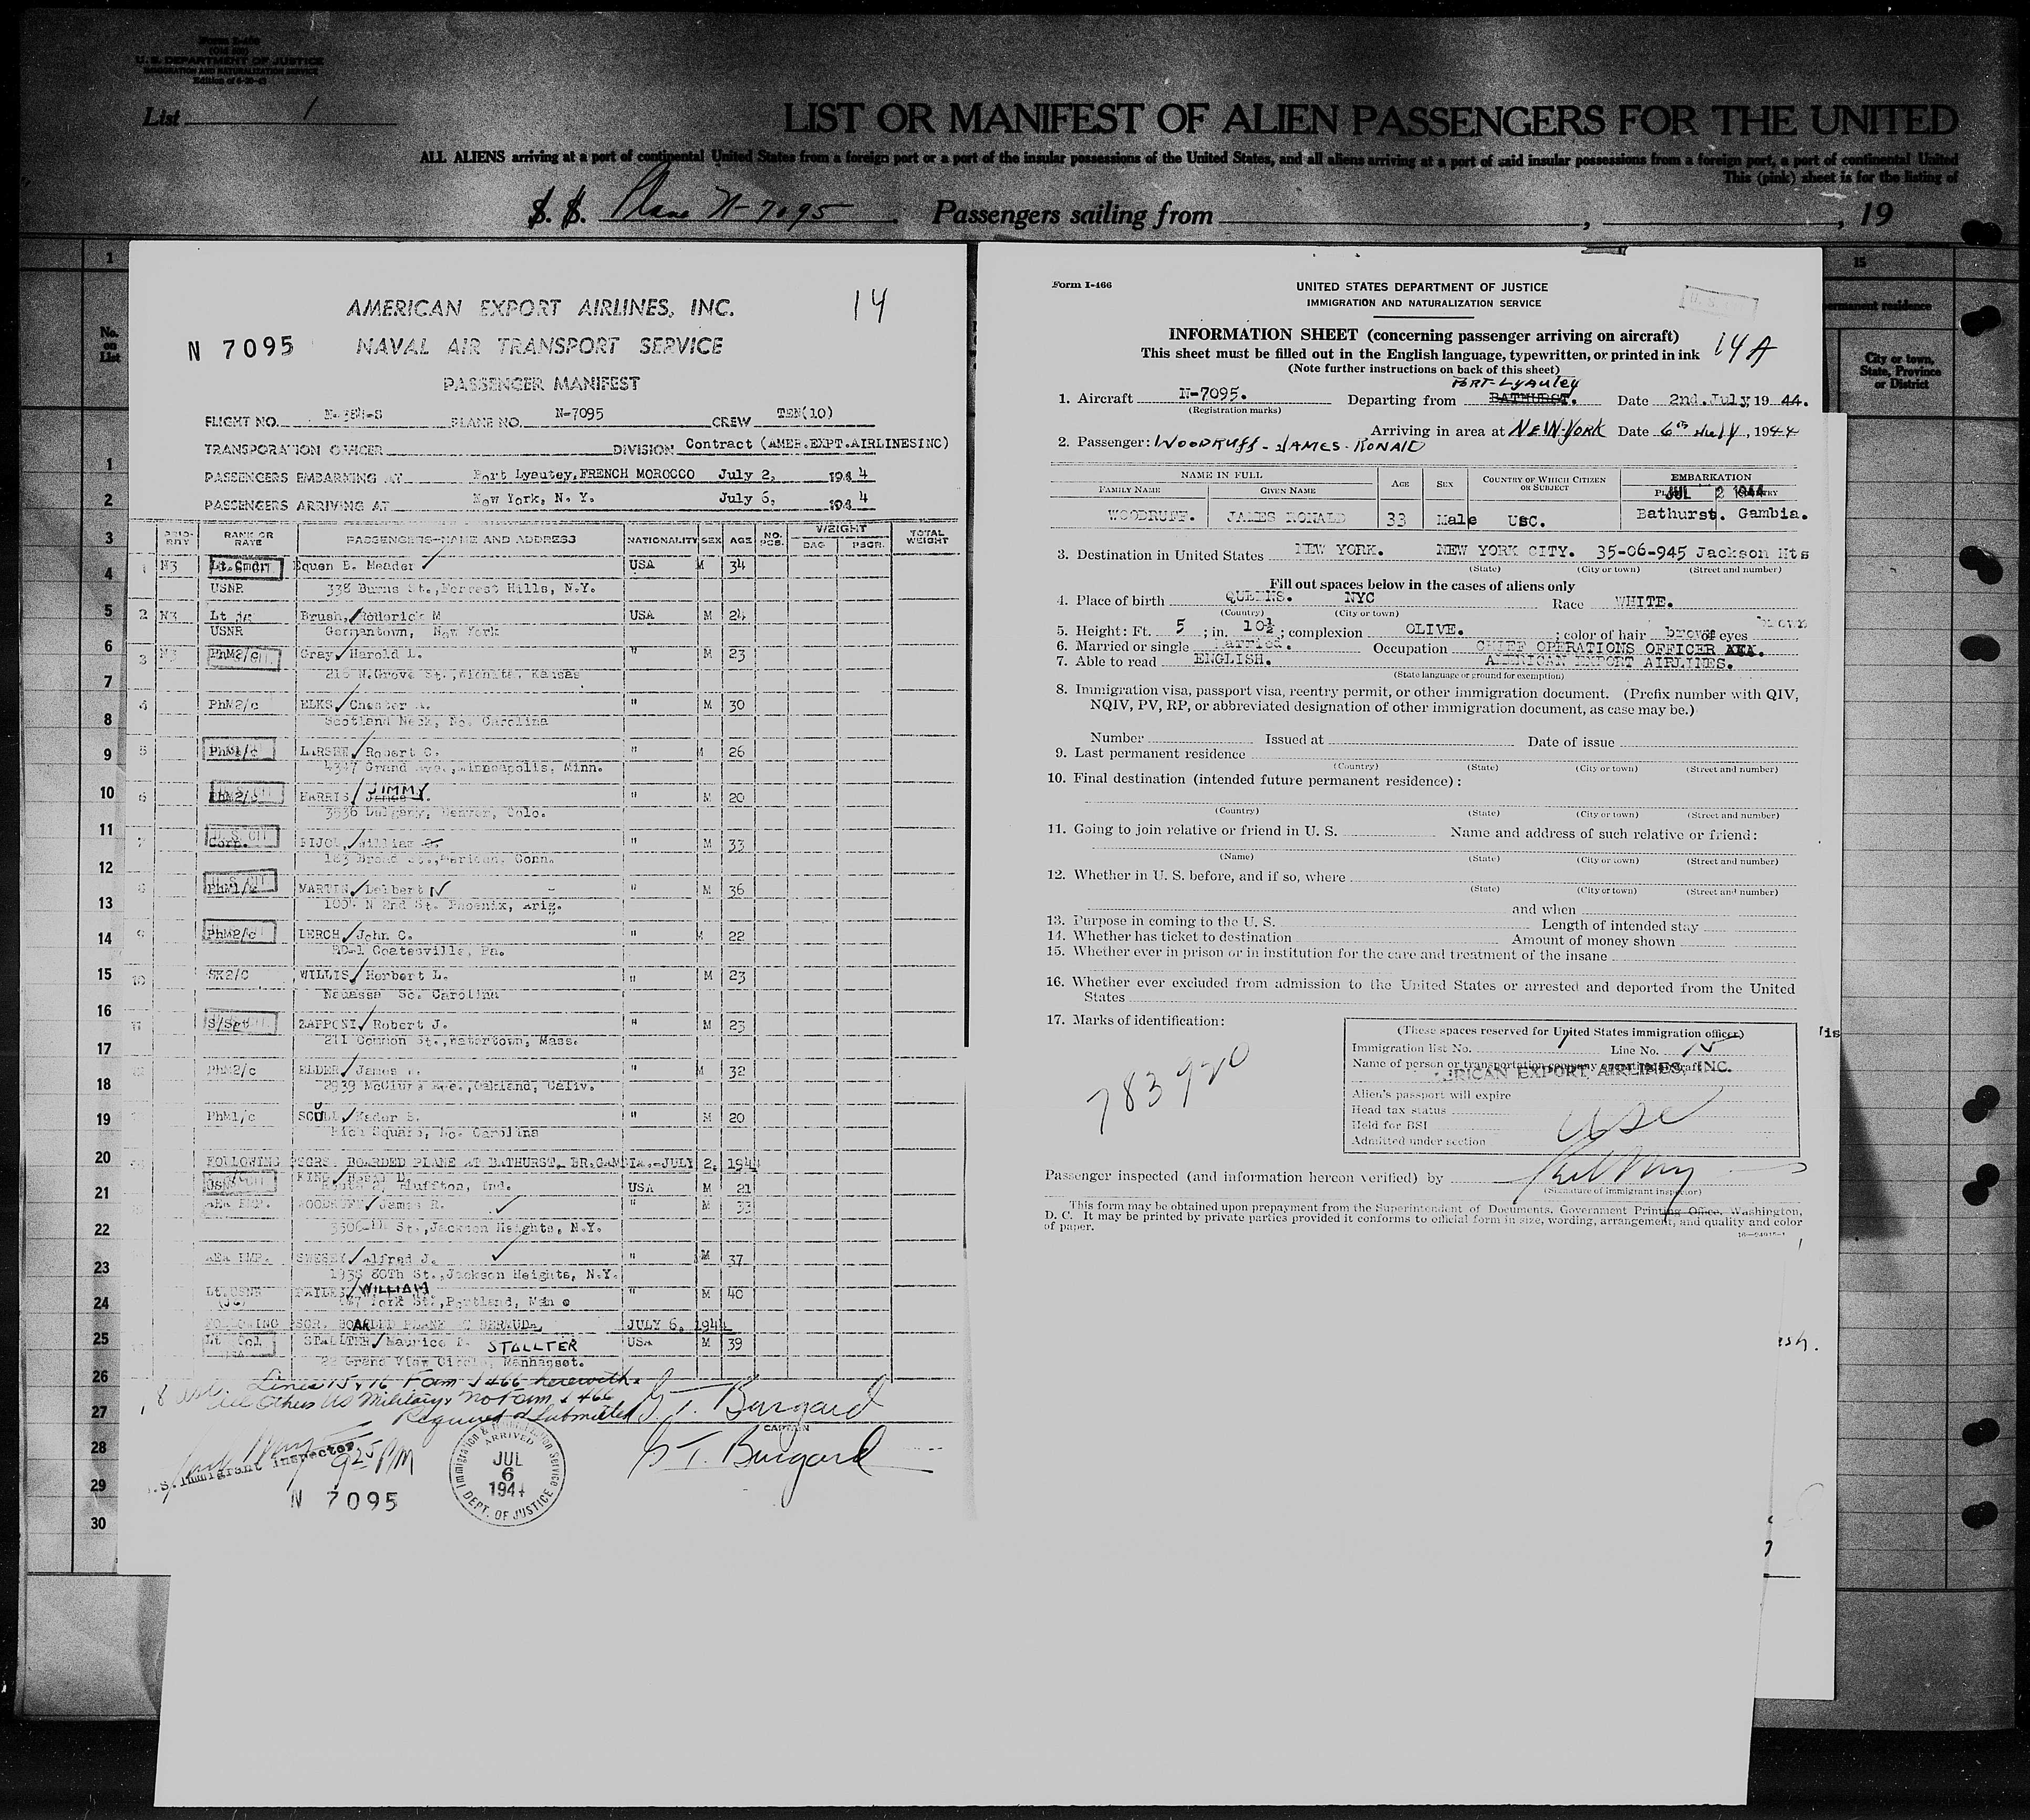 Form I-466
U. S. DEPARTMENT OF JUSTICE
IMMIGRATION AND NATURALIZATION SERVICE
List 1
LIST OR MANIFEST OF ALIEN PASSENGERS FOR THE UNITED
ALL ALIENS arriving at a port of continental United States from a foreign port or a port of the insular possessions of the United States, and all aliens arriving at a port of said insular possessions from a foreign port, a port of continental United
This (pink) sheet is for the listing of
S. S. Plane N-7095 Passengers sailing from , , 19
AMERICAN EXPORT AIRLINES, INC. 14
N 7095 NAVAL AIR TRANSPORT SERVICE
PASSENGER MANIFEST
FLIGHT NO. PLANE NO. N-7095 CREW TEN(10)
TRANSPORATION OFFICER DIVISION Contract (AMER.EXPT.AIRLINESINC)
PASSENGERS EMBARKING AT Port Lyautey, FRENCH MOROCCO July 2, 1944
PASSENGERS ARRIVING AT New York, N. Y. July 6, 1944
PRIO-RITY RANK OR RATE PASSENGERS-NAME AND ADDRESS NATIONALITY SEX AGE NO. PCS. WEIGHT BAG PSGR. TOTAL WEIGHT
1 N3 Lt. Cmdr Equen B. Meader USA M 34
USNR 338 Burns St., Forrest Hills, N.Y.
2 N3 Lt jg Brush, Roderick M USA M 24
USNR Germantown, New York
3 N3 PhM2/c Gray, Harold L. " M 23
216 N.Grove St., Wichita, Kansas
4 PhM2/c ELKS, Chester " M 30
Scotland Neck, No. Carolina
5 PhM1/c LARSEN, Robert C. " M 26
4347 Grand Ave., Minneapolis, Minn.
6 PhM2/c HARRIS JIMMY " M 20
3936 Delgany, Denver, Colo.
7 Corp. William " M 33
183 Broad St., Meriden, Conn.
8 PhM1/c MARTIN, Delbert N " M 36
N 2nd St. Phoenix, Ariz.
9 PhM2/c LERCH, John C. " M 22
Coatesville, Pa.
10 SK2/C WILLIS, Herbert L. " M 23
So. Carolina
11 S/Sgt ZAPPONI, Robert J. " M 23
211 Common St., Watertown, Mass.
PhM2/c ELDER, James " M 32
2939 McClure Ave., Oakland, Caliv.
PhM1/c SCULL, Kader B. " M 20
Rich Square, No. Carolina
FOLLOWING PSGRS. BOARDED PLANE AT BATHURST, BR.GAMBIA.-JULY 2, 1944
KING, D. Bluffton, Ind. USA M 21
AEA EMP. WOODRUFF, James R. " M 33
St., Jackson Heights, N.Y.
AEA EMP. SWEENY, Alfred J. " M 37
80Th St., Jackson Heights, N.Y.
Lt. USNR WILLIAM " M 40
(JG) York St., Portland, Maine
FOLLOWING PSGR. BOARDED PLANE AT BERMUDA, JULY 6, 1944
Lt Col STALLTER, Maurice STALLTER USA M 39
22 Grand View Circle, Manhasset.
Lines 15 & 16 Form I 466 herewith.
All others US Military, No Form I 466
Required or Submitted
G. T. Burgard
CAPTAIN
G T. Burgard
U.S. Immigrant Inspector 925 PM
Immigration & Naturalization Service
ARRIVED
JUL
6
1944
DEPT. OF JUSTICE
N 7095
Form I-466
UNITED STATES DEPARTMENT OF JUSTICE
IMMIGRATION AND NATURALIZATION SERVICE
INFORMATION SHEET (concerning passenger arriving on aircraft) 14A
This sheet must be filled out in the English language, typewritten, or printed in ink
(Note further instructions on back of this sheet)
PORT-LYAUTEY
1. Aircraft N-7095. Departing from BATHURST. Date 2nd.July, 1944.
(Registration marks)
Arriving in area at NEW-YORK Date 6th July, 1944
2. Passenger: WOODRUFF - JAMES - RONALD
NAME IN FULL AGE SEX COUNTRY OF WHICH CITIZEN OR SUBJECT EMBARKATION
FAMILY NAME GIVEN NAME JUL 2 1944
WOODRUFF. JAMES RONALD 33 Male UsC. Bathurst. Gambia.
3. Destination in United States NEW YORK. NEW YORK CITY. 35-06-945 Jackson Hts
(State) (City or town) (Street and number)
Fill out spaces below in the cases of aliens only
4. Place of birth QUEENS. NYC Race WHITE.
(Country) (City or town)
5. Height: Ft. 5 ; in. 10½ ; complexion OLIVE. ; color of hair brown of eyes brown
6. Married or single Married. Occupation CHIEF OPERATIONS OFFICER AEA.
7. Able to read ENGLISH. AMERICAN EXPORT AIRLINES.
(State language or ground for exemption)
8. Immigration visa, passport visa, reentry permit, or other immigration document. (Prefix number with QIV,
NQIV, PV, RP, or abbreviated designation of other immigration document, as case may be.)
Number Issued at Date of issue
9. Last permanent residence
(Country) (State) (City or town) (Street and number)
10. Final destination (intended future permanent residence):
(Country) (State) (City or town) (Street and number)
11. Going to join relative or friend in U. S. Name and address of such relative or friend:
(Name) (State) (City or town) (Street and number)
12. Whether in U. S. before, and if so, where
(State) (City or town) (Street and number)
and when
13. Purpose in coming to the U. S. Length of intended stay
14. Whether has ticket to destination Amount of money shown
15. Whether ever in prison or in institution for the care and treatment of the insane
16. Whether ever excluded from admission to the United States or arrested and deported from the United
States
17. Marks of identification:
783920
(These spaces reserved for United States immigration officer)
Immigration list No. 1 Line No. 15
Name of person or transportation company operating aircraft
AMERICAN EXPORT AIRLINES, INC.
Alien's passport will expire
Head tax status
Held for BSI
Admitted under section
USC
Passenger inspected (and information hereon verified) by
(Signature of immigrant inspector)
This form may be obtained upon prepayment from the Superintendent of Documents, Government Printing Office, Washington,
D. C. It may be printed by private parties provided it conforms to official form in size, wording, arrangement, and quality and color
of paper.
No. on List
1
2
3
4
5
6
7
8
9
10
11
12
13
14
15
16
17
18
19
20
21
22
23
24
25
26
27
28
29
30
15
permanent residence
City or town, State, Province or District